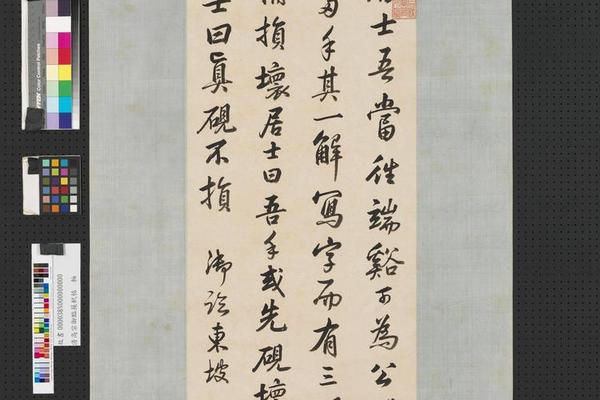 士吾當往端谿可為公
手其一解寫字而有三
損壞居士曰吾手或先硯壞
士曰眞硯不損
御臨東坡